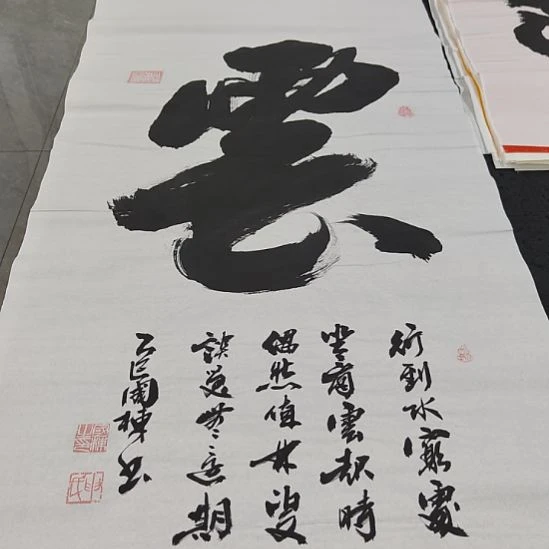 雲
行到水窮處
坐看雲起時
偶然值林叟
談笑無還期
乙巳國棟書